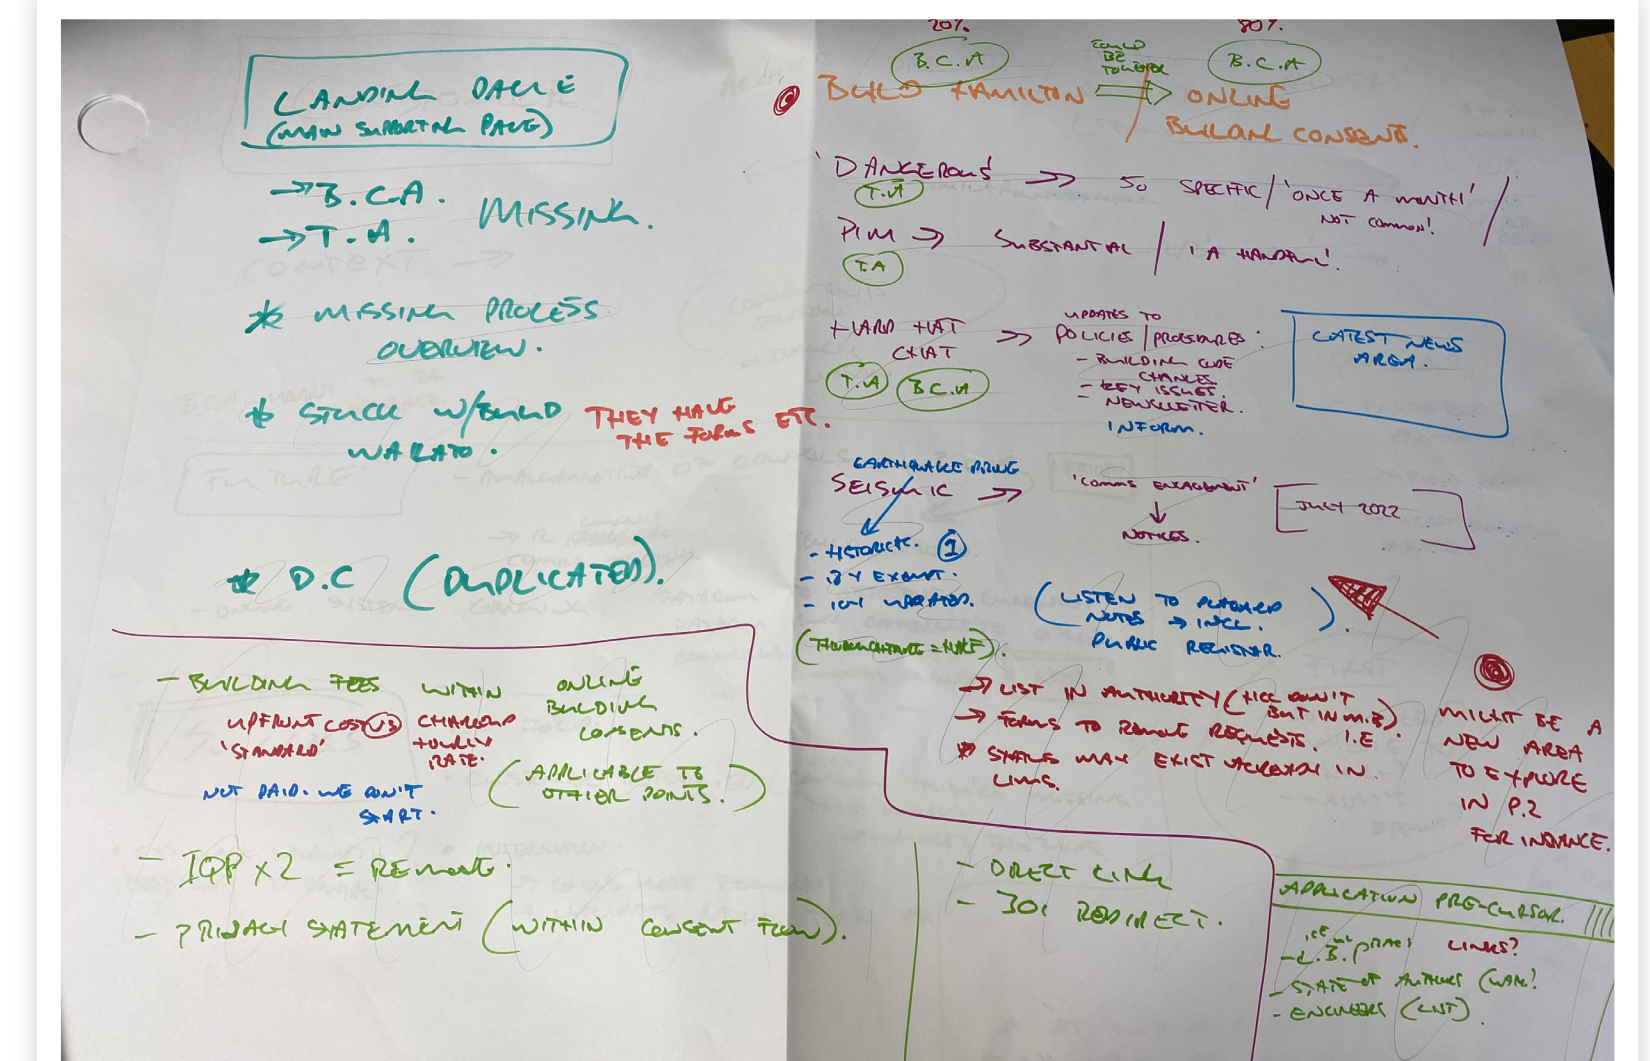 LANDING PAGE
(MAIN SUPPORTING PAGE)
→ B.C.A.
→ T.A.
MISSING.
* MISSING PROCESS
OVERVIEW.
* STUCK W/BUILD
WAIKATO.
THEY HAVE
THE FORMS ETC.
* D.C (DUPLICATED).
- BUILDING FEES WITHIN ONLINE
BUILDING
CONSENTS.
UPFRONT COST VS CHARGED
'STANDARD' HOURLY
RATE.
(APPLICABLE TO
OTHER POINTS.)
NOT PAID. WE DON'T
START.
- IQP x2 = REMOVE.
- PRIVACY STATEMENT (WITHIN CONSENT FLOW).
20%. 80%.
B.C.A
COULD
BE
TOGETHER
B.C.A
BUILD HAMILTON ⇒ ONLINE
BUILDING CONSENTS.
'DANGEROUS' → SO SPECIFIC / 'ONCE A MONTH' /
NOT COMMON!
T.A
PIM → SUBSTANTIAL / 'A HANDFUL'.
T.A
HARD HAT
CHAT
→ UPDATES TO
POLICIES / PROCEDURES.
- BUILDING CODE
CHANGES
- KEY ISSUES.
- NEWSLETTER.
INFORM.
T.A B.C.A
LATEST NEWS
AREA.
EARTHQUAKE PRONE
SEISMIC → 'COMMS ENGAGEMENT'
↓
NOTICES.
JULY 2022
- HISTORIC. 1
(LISTEN TO
NOTES → INCL.
PUBLIC REGISTER.)
→ LIST IN AUTHORITY (HCC DON'T
BUT IN M.B).
→ FORMS TO REMOVE REQUESTS. I.E
* STATUS MAY EXIST ALREADY IN
LIMS.
MIGHT BE A
NEW AREA
TO EXPLORE
IN P.2
FOR INSTANCE.
- DIRECT LINK
- 301 REDIRECT.
APPLICATION PRE-CURSOR.
LINKS?
- ENGINEERS (LIST).